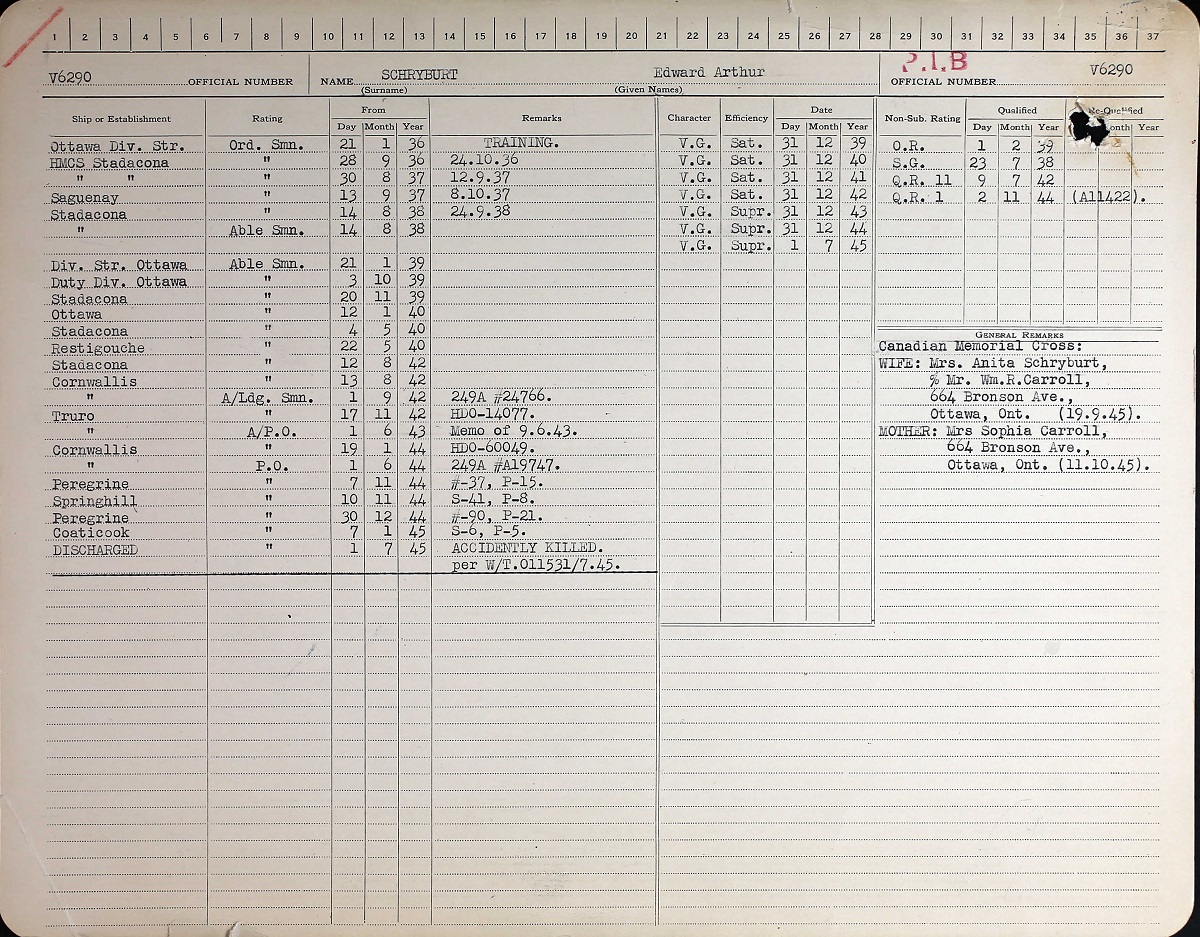 1 2 3 4 5 6 7 8 9 10 11 12 13 14 15 16 17 18 19 20 21 22 23 24 25 26 27 28 29 30 31 32 33 34 35 36 37
V6290 OFFICIAL NUMBER NAME SCHRYBURT Edward Arthur P.I.B OFFICIAL NUMBER V6290
(Surname) (Given Names)
Ship or Establishment Rating From Remarks Character Efficiency Date Non-Sub. Rating Qualified Re-Qualified
Day Month Year Day Month Year Day Month Year Month Year
Ottawa Div. Str. Ord. Smn. 21 1 36 TRAINING. V.G. Sat. 31 12 39 O.R. 1 2 39
HMCS Stadacona " 28 9 36 24.10.36 V.G. Sat. 31 12 40 S.G. 23 7 38
" " " 30 8 37 12.9.37 V.G. Sat. 31 12 41 Q.R. 11 9 7 42
Saguenay " 13 9 37 8.10.37 V.G. Sat. 31 12 42 Q.R. 1 2 11 44 (A11422).
Stadacona " 14 8 38 24.9.38 V.G. Supr. 31 12 43
" Able Smn. 14 8 38 V.G. Supr. 31 12 44
V.G. Supr. 1 7 45
Div. Str. Ottawa Able Smn. 21 1 39
Duty Div. Ottawa " 3 10 39
Stadacona " 20 11 39
Ottawa " 12 1 40
Stadacona " 4 5 40
Restigouche " 22 5 40
Stadacona " 12 8 42
Cornwallis " 13 8 42
" A/Ldg. Smn. 1 9 42 249A #24766.
Truro " 17 11 42 HDO-14077.
" A/P.O. 1 6 43 Memo of 9.6.43.
Cornwallis " 19 1 44 HDO-60049.
" P.O. 1 6 44 249A #A19747.
Peregrine " 7 11 44 #-37, P-15.
Springhill " 10 11 44 S-41, P-8.
Peregrine " 30 12 44 #-90, P-21.
Coaticook " 7 1 45 S-6, P-5.
DISCHARGED " 1 7 45 ACCIDENTLY KILLED.
per W/T.011531/7.45.
GENERAL REMARKS
Canadian Memorial Cross:
WIFE: Mrs. Anita Schryburt,
% Mr. Wm.R.Carroll,
664 Bronson Ave.,
Ottawa, Ont. (19.9.45).
MOTHER: Mrs Sophia Carroll,
664 Bronson Ave.,
Ottawa, Ont. (11.10.45).